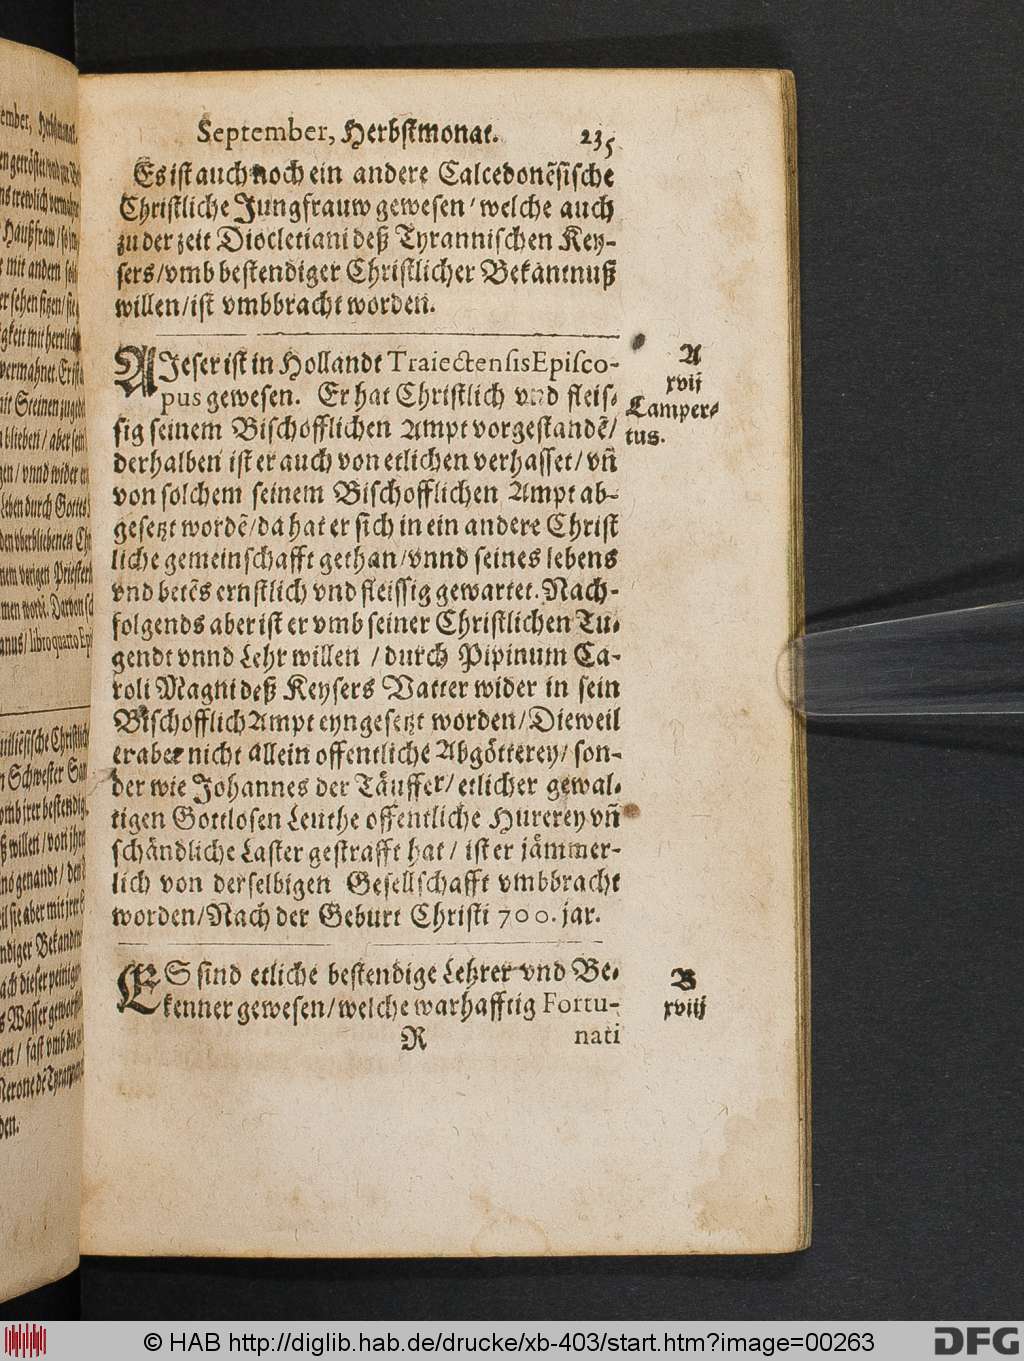 September, Herbstmonat. 235
Es ist auch noch ein andere Calcedonẽsische
Christliche Jungfrauw gewesen / welche auch
zu der zeit Diocletiani deß Tyrannischen Key-
sers / vmb bestendiger Christlicher Bekantnuß
willen / ist vmbbracht worden.
A
xvij
Lamper-
tus.
AJeser ist in Hollandt Traiectensis Episco-
pus gewesen. Er hat Christlich vnd fleis-
sig seinem Bischofflichen Ampt vorgestandẽ /
derhalben ist er auch von etlichen verhasset / vñ
von solchem seinem Bischofflichen Ampt ab-
gesetzt wordẽ / da hat er sich in ein andere Christ
liche gemeinschafft gethan / vnnd seines lebens
vnd betẽs ernstlich vnd fleissig gewartet. Nach-
folgends aber ist er vmb seiner Christlichen Tu-
gendt vnnd Lehr willen / durch Pipinum Ca-
roli Magni deß Keysers Vatter wider in sein
Bischofflich Ampt eyngesetzt worden / Dieweil
er aber nicht allein offentliche Abgötterey / son-
der wie Johannes der Täuffer / etlicher gewal-
tigen Gottlosen Leuthe offentliche Hurerey vñ
schändliche Laster gestrafft hat / ist er jämmer-
lich von derselbigen Gesellschafft vmbbracht
worden / Nach der Geburt Christi 700. jar.
B
xviij
ES sind etliche bestendige Lehrer vnd Be-
kenner gewesen / welche warhafftig Fortu-
R nati
© HAB http://diglib.hab.de/drucke/xb-403/start.htm?image=00263
DFG